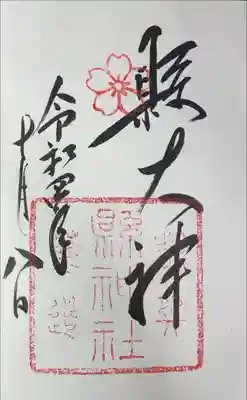 縣大神
令和四年
十月八日
縣神社